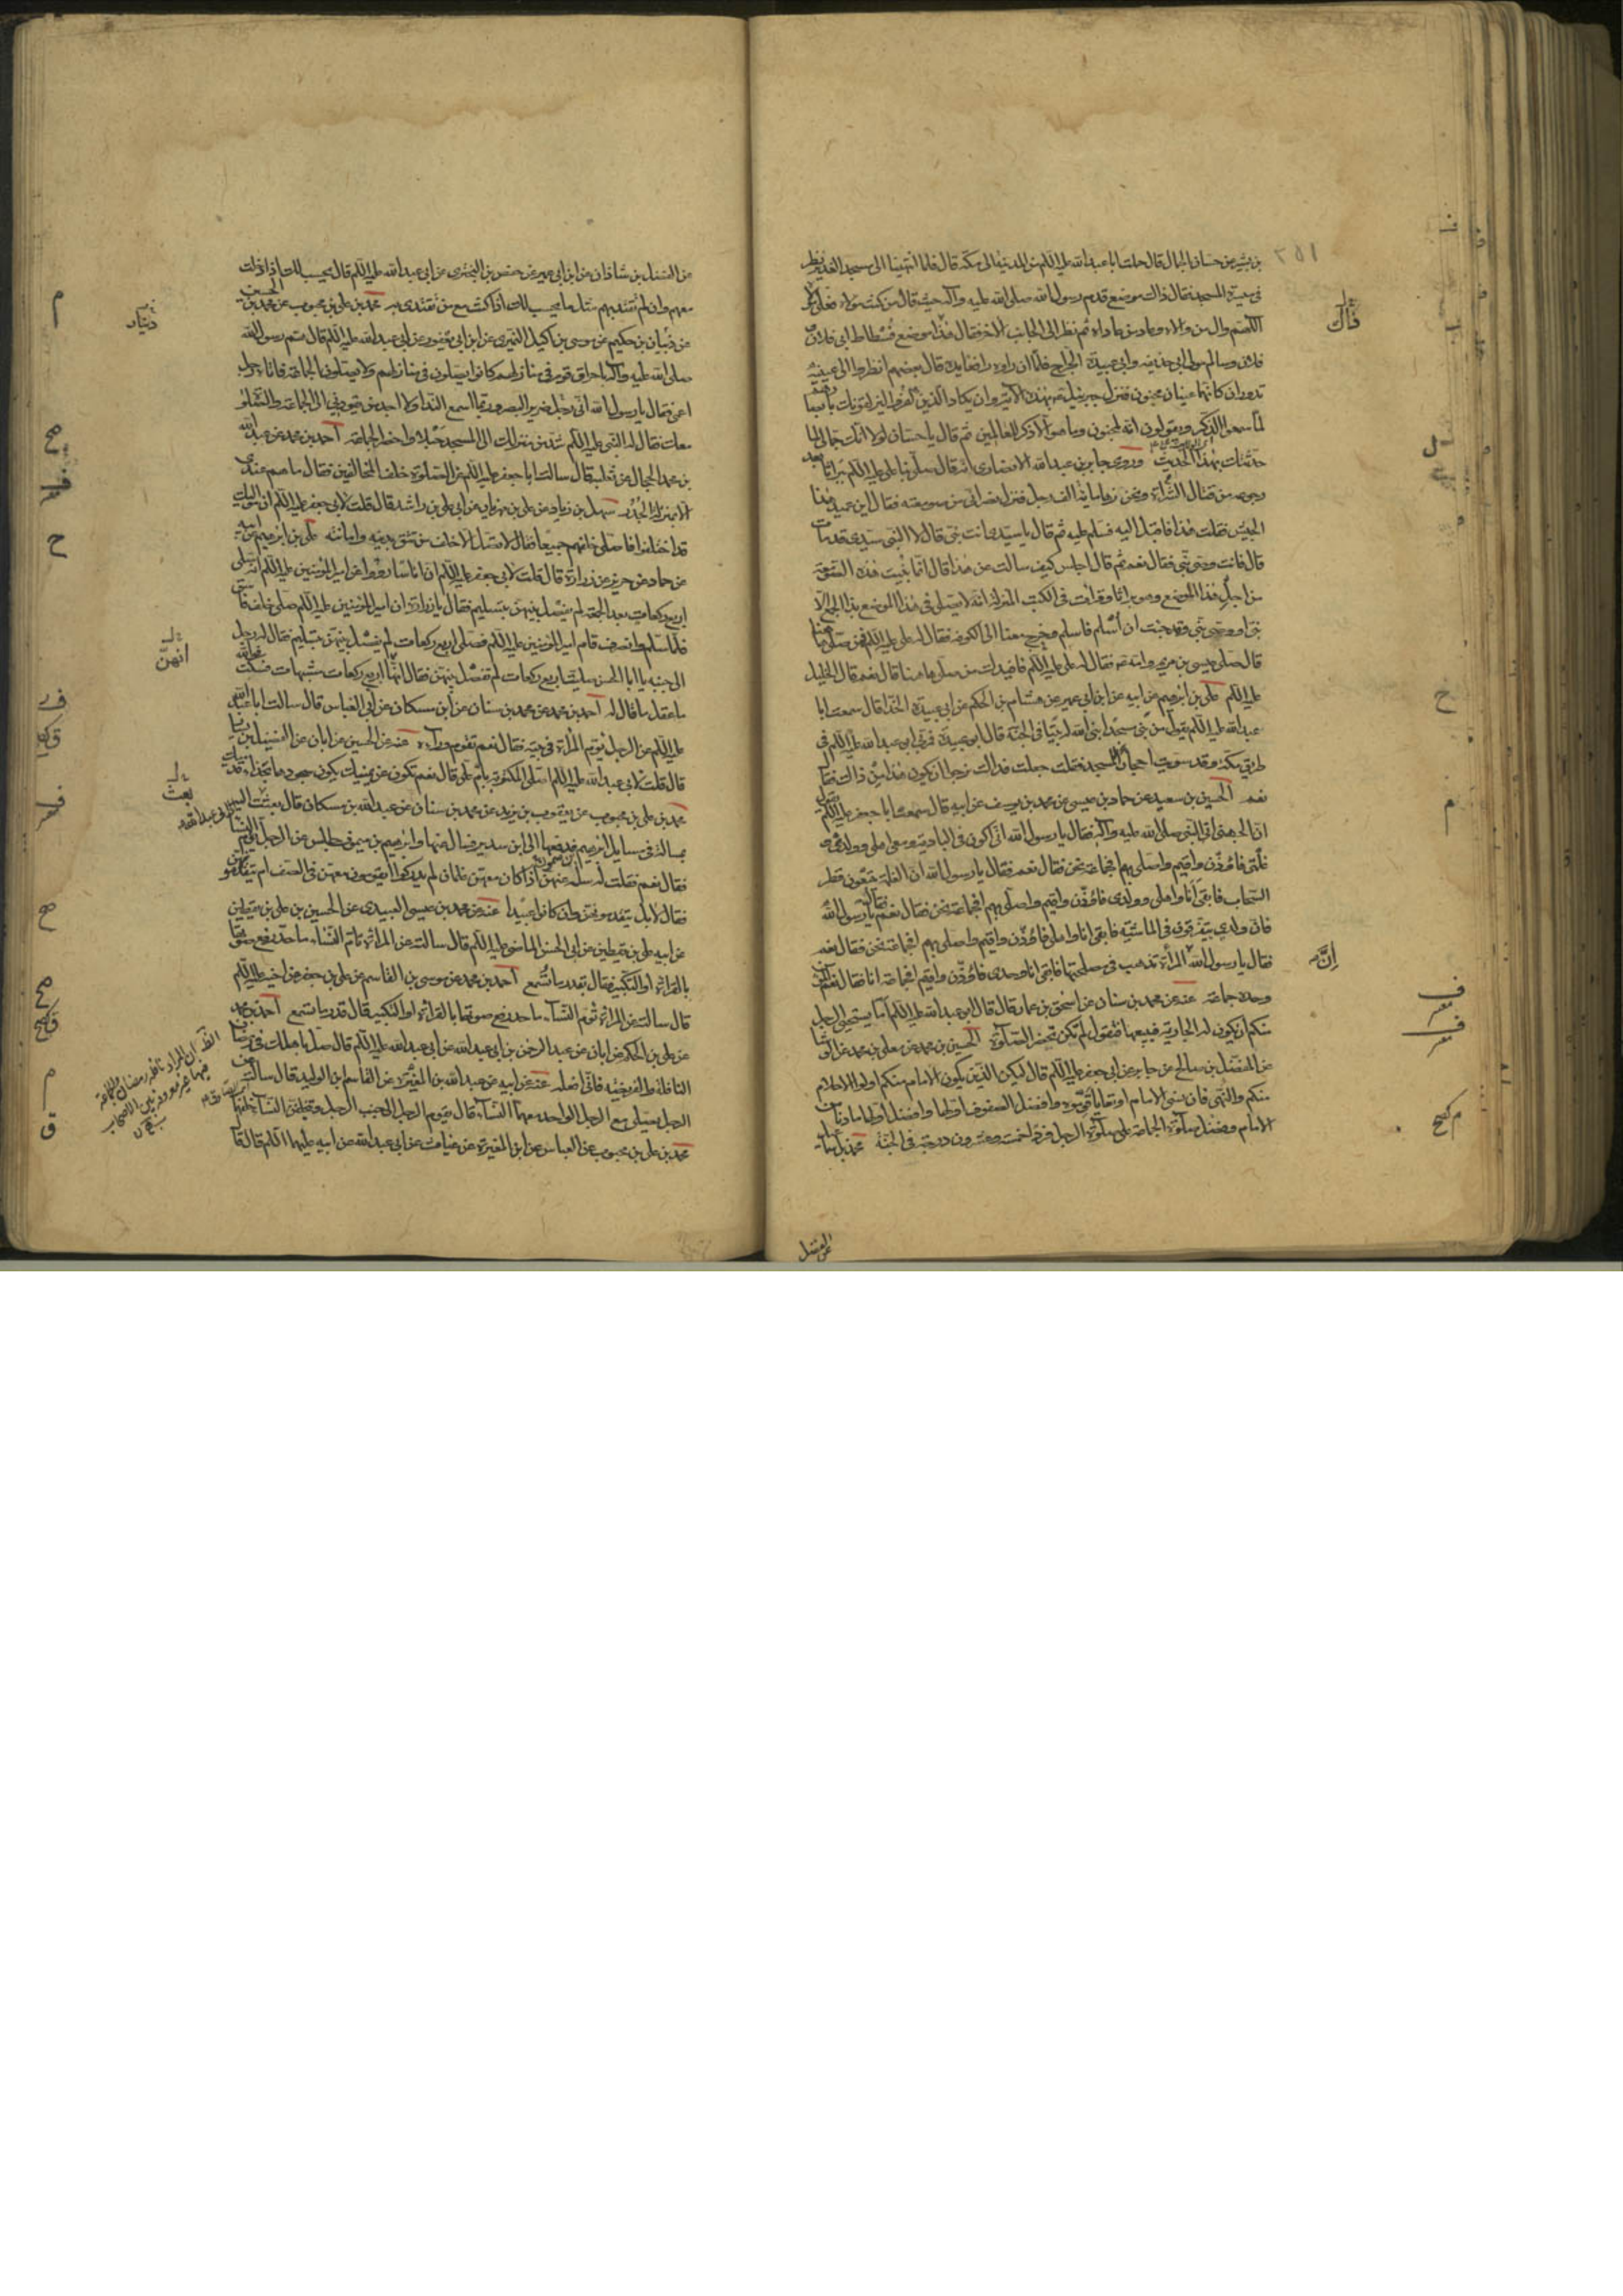 ٢٥١
بن بشير عن حسان الجمال قال حملت ابا عبد الله عليه السلم من المدينة الى مكة قال فلما انتهينا الى مسجد الغدير نظر
فى ميسرة المسجد فقال ذاك موضع قدم رسول الله صلى الله عليه وآله حيث قال من كنت مولاه فعلى مولاه
اللهم وال من والاه وعاد من عاداه ثم نظر الى الجانب الاخر فقال هذا موضع فسطاط ابى فلان و
فلان وسالم مولى ابى حذيفه وابى عبيدة الجراح فلما ان راوه رافعا يده قال بعضهم انظروا الى عينيه
تدوران كانهما عينا مجنون فنزل جبرئيل بهذه الآية وان يكاد الذين كفروا ليزلقونك بابصارهم
لما سمعوا الذكر ويقولون انه لمجنون وما هو الا ذكر للعالمين ثم قال يا حسان لولا انك جمالى لما
حدثتك بهذا الحديث وروى جابر بن عبد الله الانصارى انه قال صلى بنا على عليه السلم ببراثا بعد
رجوعه من قتال الشراة ونحن زهاء مائة الف رجل فنزل نصرانى من صومعته فقال اين عميد هذا
الجيش فقلت هذا فاقبل اليه فسلم عليه ثم قال يا سيدى انت نبى قال لا النبى سيدى قد مات
قال فانت وصى نبى فقال نعم ثم قال اجلس كيف سالت عن هذا قال انما بنيت هذه الصومعة
من اجل هذا الموضع وهو براثا وقرات فى الكتب المنزلة انه لا يصلى فى هذا الموضع بذا الجمع الا
نبى او وصى نبى وقد جئت ان اسلم فاسلم وخرج معنا الى الكوفة فقال له على عليه السلم فمن صلى ههنا
قال صلى عيسى بن مريم وامه فقال له على عليه السلم فافيدك من صلى هاهنا قال نعم قال الخليل
عليه السلم على بن ابرهيم عن ابيه عن ابن ابى عمير عن هشام بن الحكم عن ابى عبيدة الحذا قال سمعت ابا
عبد الله عليه السلم يقول من بنى مسجدا بنى الله له بيتا فى الجنة قال ابو عبيدة فمر بى ابو عبد الله عليه السلم فى
طريق مكة وقد سويت احجارا لمسجد فقلت جعلت فداك نرجو ان يكون هذا من ذاك فقال
نعم الحسين بن سعيد عن حماد بن عيسى عن محمد بن يوسف عن ابيه قال سمعت ابا جعفر عليه السلم يقول
ان الجهنى اتى النبى صلى الله عليه وآله فقال يا رسول الله انى اكون فى البادية ومعى اهلى وولدى و
غلمتى فاؤذن واقيم واصلى بهم افجماعة نحن فقال نعم فقال يا رسول الله ان الغلمة يتبعون قطر
السحاب فابقى انا واهلى وولدى فاؤذن واقيم واصلى بهم افجماعة نحن فقال نعم فقال يا رسول الله
فان ولدى يتفرقون فى الماشية فابقى انا واهلى فاؤذن واقيم واصلى بهم افجماعة نحن فقال نعم
فقال يا رسول الله المرأة تذهب فى مصلحتها فابقى انا وحدى فاؤذن واقيم افجماعة انا فقال نعم المؤمن
وحده جماعة عنه عن محمد بن سنان عن اسحق بن عمار قال قال ابو عبد الله عليه السلم اما يستحيى الرجل
منكم ان يكون له الجارية فيبيعها فتقول لم تكن تحضر الصلوة الحسين بن محمد عن معلى بن محمد عن الوشا
عن المفضل بن صالح عن جابر عن ابى جعفر عليه السلم قال ليكن الذين يكون الامام منكم اولو الاحلام
منكم والنهى فان نسى الامام او تعايا قوموه وافضل الصفوف اولها وافضل اولها ما دنا من
الامام وفضل صلوة الجماعة على صلوة الرجل فردا خمس وعشرون درجة فى الجنة محمد بن اسماعيل
عن الفضل
ذاك
إنّ
عن الفضل بن شاذان عن ابن ابى عمير عن حفص بن البخترى عن ابى عبد الله عليه السلم قال يحسب لك اذا دخلت
معهم وان لم تقتد بهم مثل ما يحسب لك اذا كنت مع من تقتدى به محمد بن على بن محبوب عن محمد بن الحسين
عن ذبيان بن حكيم عن موسى بن اكيل النميرى عن ابن ابى يعفور عن ابى عبد الله عليه السلم قال هم رسول الله
صلى الله عليه وآله باحراق قوم فى منازلهم كانوا يصلون فى منازلهم ولا يصلون الجماعة فاتاه رجل
اعمى فقال يا رسول الله انى رجل ضرير البصر وربما اسمع النداء ولا اجد من يقودنى الى الجماعة والصلوة
معك فقال له النبى عليه السلم شد من منزلك الى المسجد حبلا واحضر الجماعة احمد بن محمد عن عبد الله
بن محمد الحجال عن ثعلبة قال سالت ابا جعفر عليه السلم عن الصلوة خلف المخالفين فقال ما هم عندى
الا بمنزلة الجدر سهل بن زياد عن على بن مهزيار عن ابى على بن راشد قال قلت لابى جعفر عليه السلم ان مواليك
قد اختلفوا فاصلى خلفهم جميعا فقال لا تصل الا خلف من تثق بدينه وامانته على بن ابرهيم عن ابيه
عن حماد عن حريز عن زرارة قال قلت لابى جعفر عليه السلم ان اناسا رووا عن امير المؤمنين عليه السلم انه صلى
اربع ركعات بعد الجمعة لم يفصل بينهن بتسليم فقال يا زرارة ان امير المؤمنين عليه السلم صلى خلف فاسق
فلما سلم وانصرف قام امير المؤمنين عليه السلم فصلى اربع ركعات لم يفصل بينهن بتسليم فقال له رجل
الى جنبه يا ابا الحسن صليت اربع ركعات لم تفصل بينهن فقال انها اربع ركعات مشبهات فسكت فو الله
ما عقل ما قال له احمد بن محمد عن محمد بن سنان عن ابن مسكان عن ابى العباس قال سالت ابا عبد الله
عليه السلم عن الرجل يؤم المرأة فى بيته فقال نعم تقوم وراءه عنه عن الحسين عن ابان عن الفضيل بن يسار
قال قلت لابى عبد الله عليه السلم اصلى المكتوبة بام على قال نعم تكون عن يمينك يكون سجودها بحذاء قدميك
محمد بن على بن محبوب عن يعقوب بن يزيد عن محمد بن سنان عن عبد الله بن مسكان قال بعثت اليه
بمسالة فى مسايل ابرهيم فدفعها الى ابن سدير فسال عنها وابرهيم بن ميمون جالس عن الرجل يؤم النساء
فقال نعم فقلت له سله عنهن اذا كان معهن غلمان لم يدركوا ايقومون معهن فى الصف ام يتقدمونهن
فقال لا بل يتقدمونهن وان كانوا عبيدا عنه عن محمد بن عيسى العبيدى عن الحسين بن على بن يقطين
عن ابيه على بن يقطين عن ابى الحسن الماضى عليه السلم قال سالته عن المرأة تؤم النساء ما حد رفع صوتها
بالقراءة او التكبير فقال بقدر ما تسمع احمد بن محمد عن موسى بن القاسم عن على بن جعفر عن اخيه عليه السلم
قال سالته عن المرأة تؤم النساء ما حد رفع صوتها بالقراءة او التكبير قال قدر ما تسمع احمد بن محمد
عن على بن الحكم عن ابان عن عبد الرحمن بن ابى عبد الله عن ابى عبد الله عليه السلم قال صل باهلك فى رمضان
النافلة والفريضة فانى افعله عنه عن ابيه عن عبد الله بن المغيرة عن القاسم بن الوليد قال سالته عن
الرجل يصلى مع الرجل الواحد معهما النساء قال يقوم الرجل الى جنب الرجل ويتخلفن النساء خلفهما
محمد بن على بن محبوب عن العباس عن ابن المغيرة عن غياث عن ابى عبد الله عن ابيه عليهما السلم قال قال
انهن
بعث